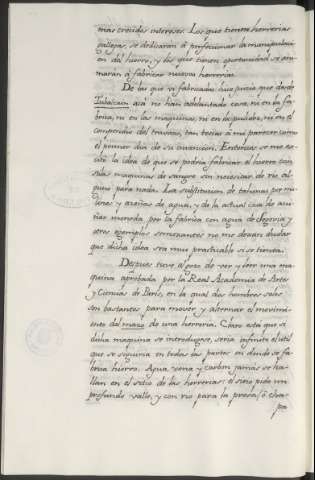 mas crecidos intereses. Los que tienen herrerias
gallegas, se dedicaran à perfeccionar la manipulacion
del hierro, y los que tienen oportunidad se animaran
à fabricar nuevas herrerias.
De las que vi fabricadas hice juicio que desde
Tubalcain acà no han adelantado cosa, ni en la fabrica,
ni en las maquinas, ni en la pulidez, ni en el
compendio del travajo, tan toscas à mi parecer como
el primer dia de su invencion. Entonces se me excitò
la idea de que se podria fabricar el hierro con
solas maquinas de sangre sin necesitar de rio alguno
para nada. La substitucion de tahonas por molinos
y azeñas de agua, y de la actual casa de acuñar
moneda por la fabrica con agua de Segovia y
otros exemplos semejantes no me dexan dudar
que dicha idea sea muy practicable si se tienta.
Despues tuve el gozo de ver y leer una maquina
aprobada por la Real Academia de Artes
y Ciencias de Paris, en la qual dos hombres solos
son bastantes para mover y alternar el movimiento
del mazo de una herreria. Claro està que si
dicha maquina se introduxese, seria infinito el util
que se seguiria en todas las partes en donde se fabrica
hierro. Agua, vena y carbon jamas se hallan
en el sitio de las herrerias: el sitio pide un
profundo valle, y con rio para la presa,
pa